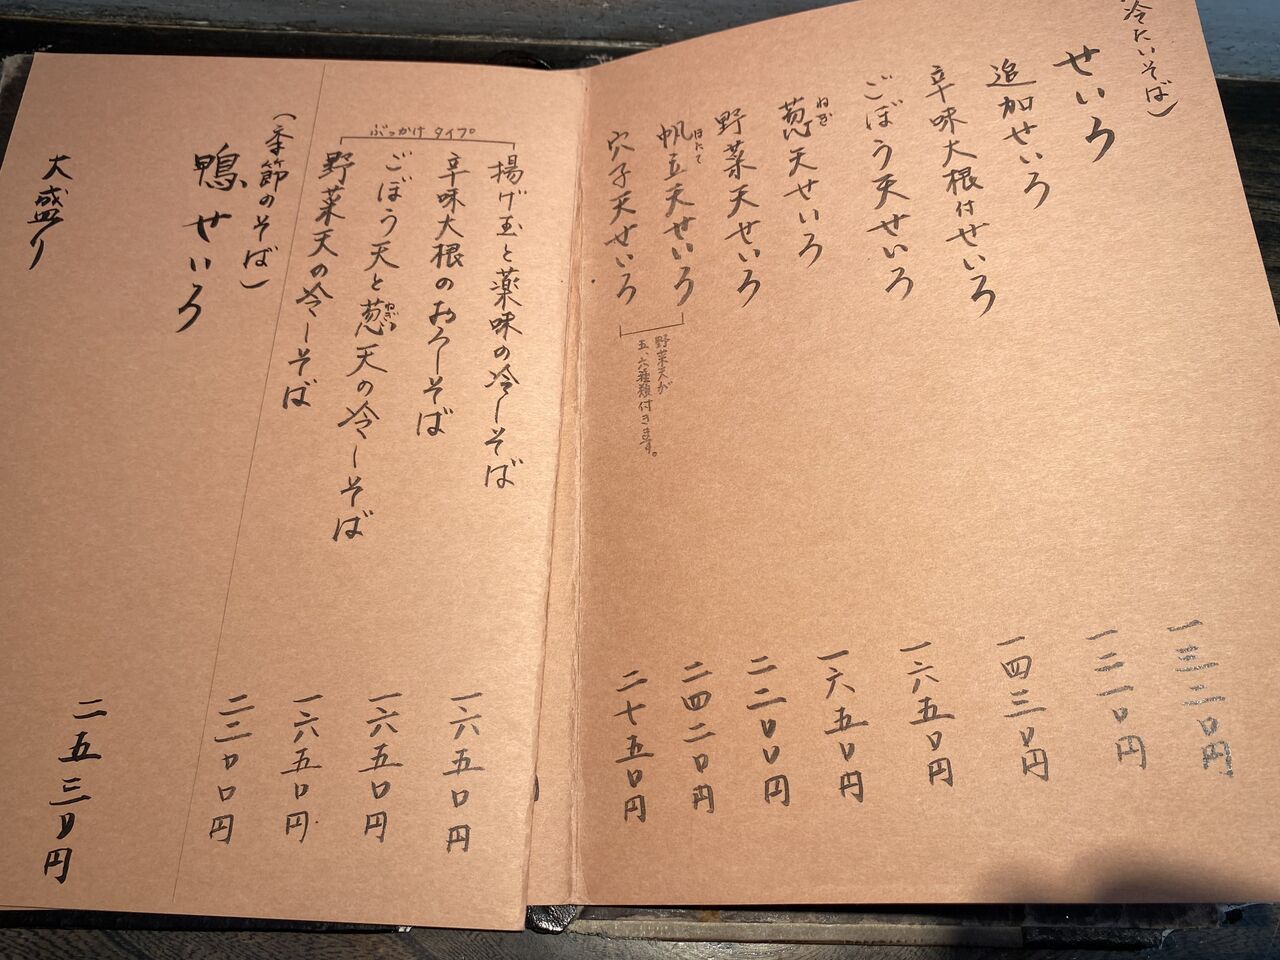 冷たいそば)
せいろ
追加せいろ
辛味大根付せいろ
ごぼう天せいろ
ねぎ
葱天せいろ
野菜天せいろ
ほたて
帆立天せいろ
穴子天せいろ
野菜天が
五、六種類付きます。
一三二〇円
一四三〇円
一六五〇円
一六五〇円
二二〇〇円
二四二〇円
二七五〇円
ぶっかけタイプ
揚げ玉と薬味の冷しそば
辛味大根のおろしそば
ねぎ
ごぼう天と葱天の冷しそば
野菜天の冷しそば
一六五〇円
一六五〇円
一六五〇円
二二〇〇円
(季節のそば)
鴨せいろ
二五三〇円
大盛り